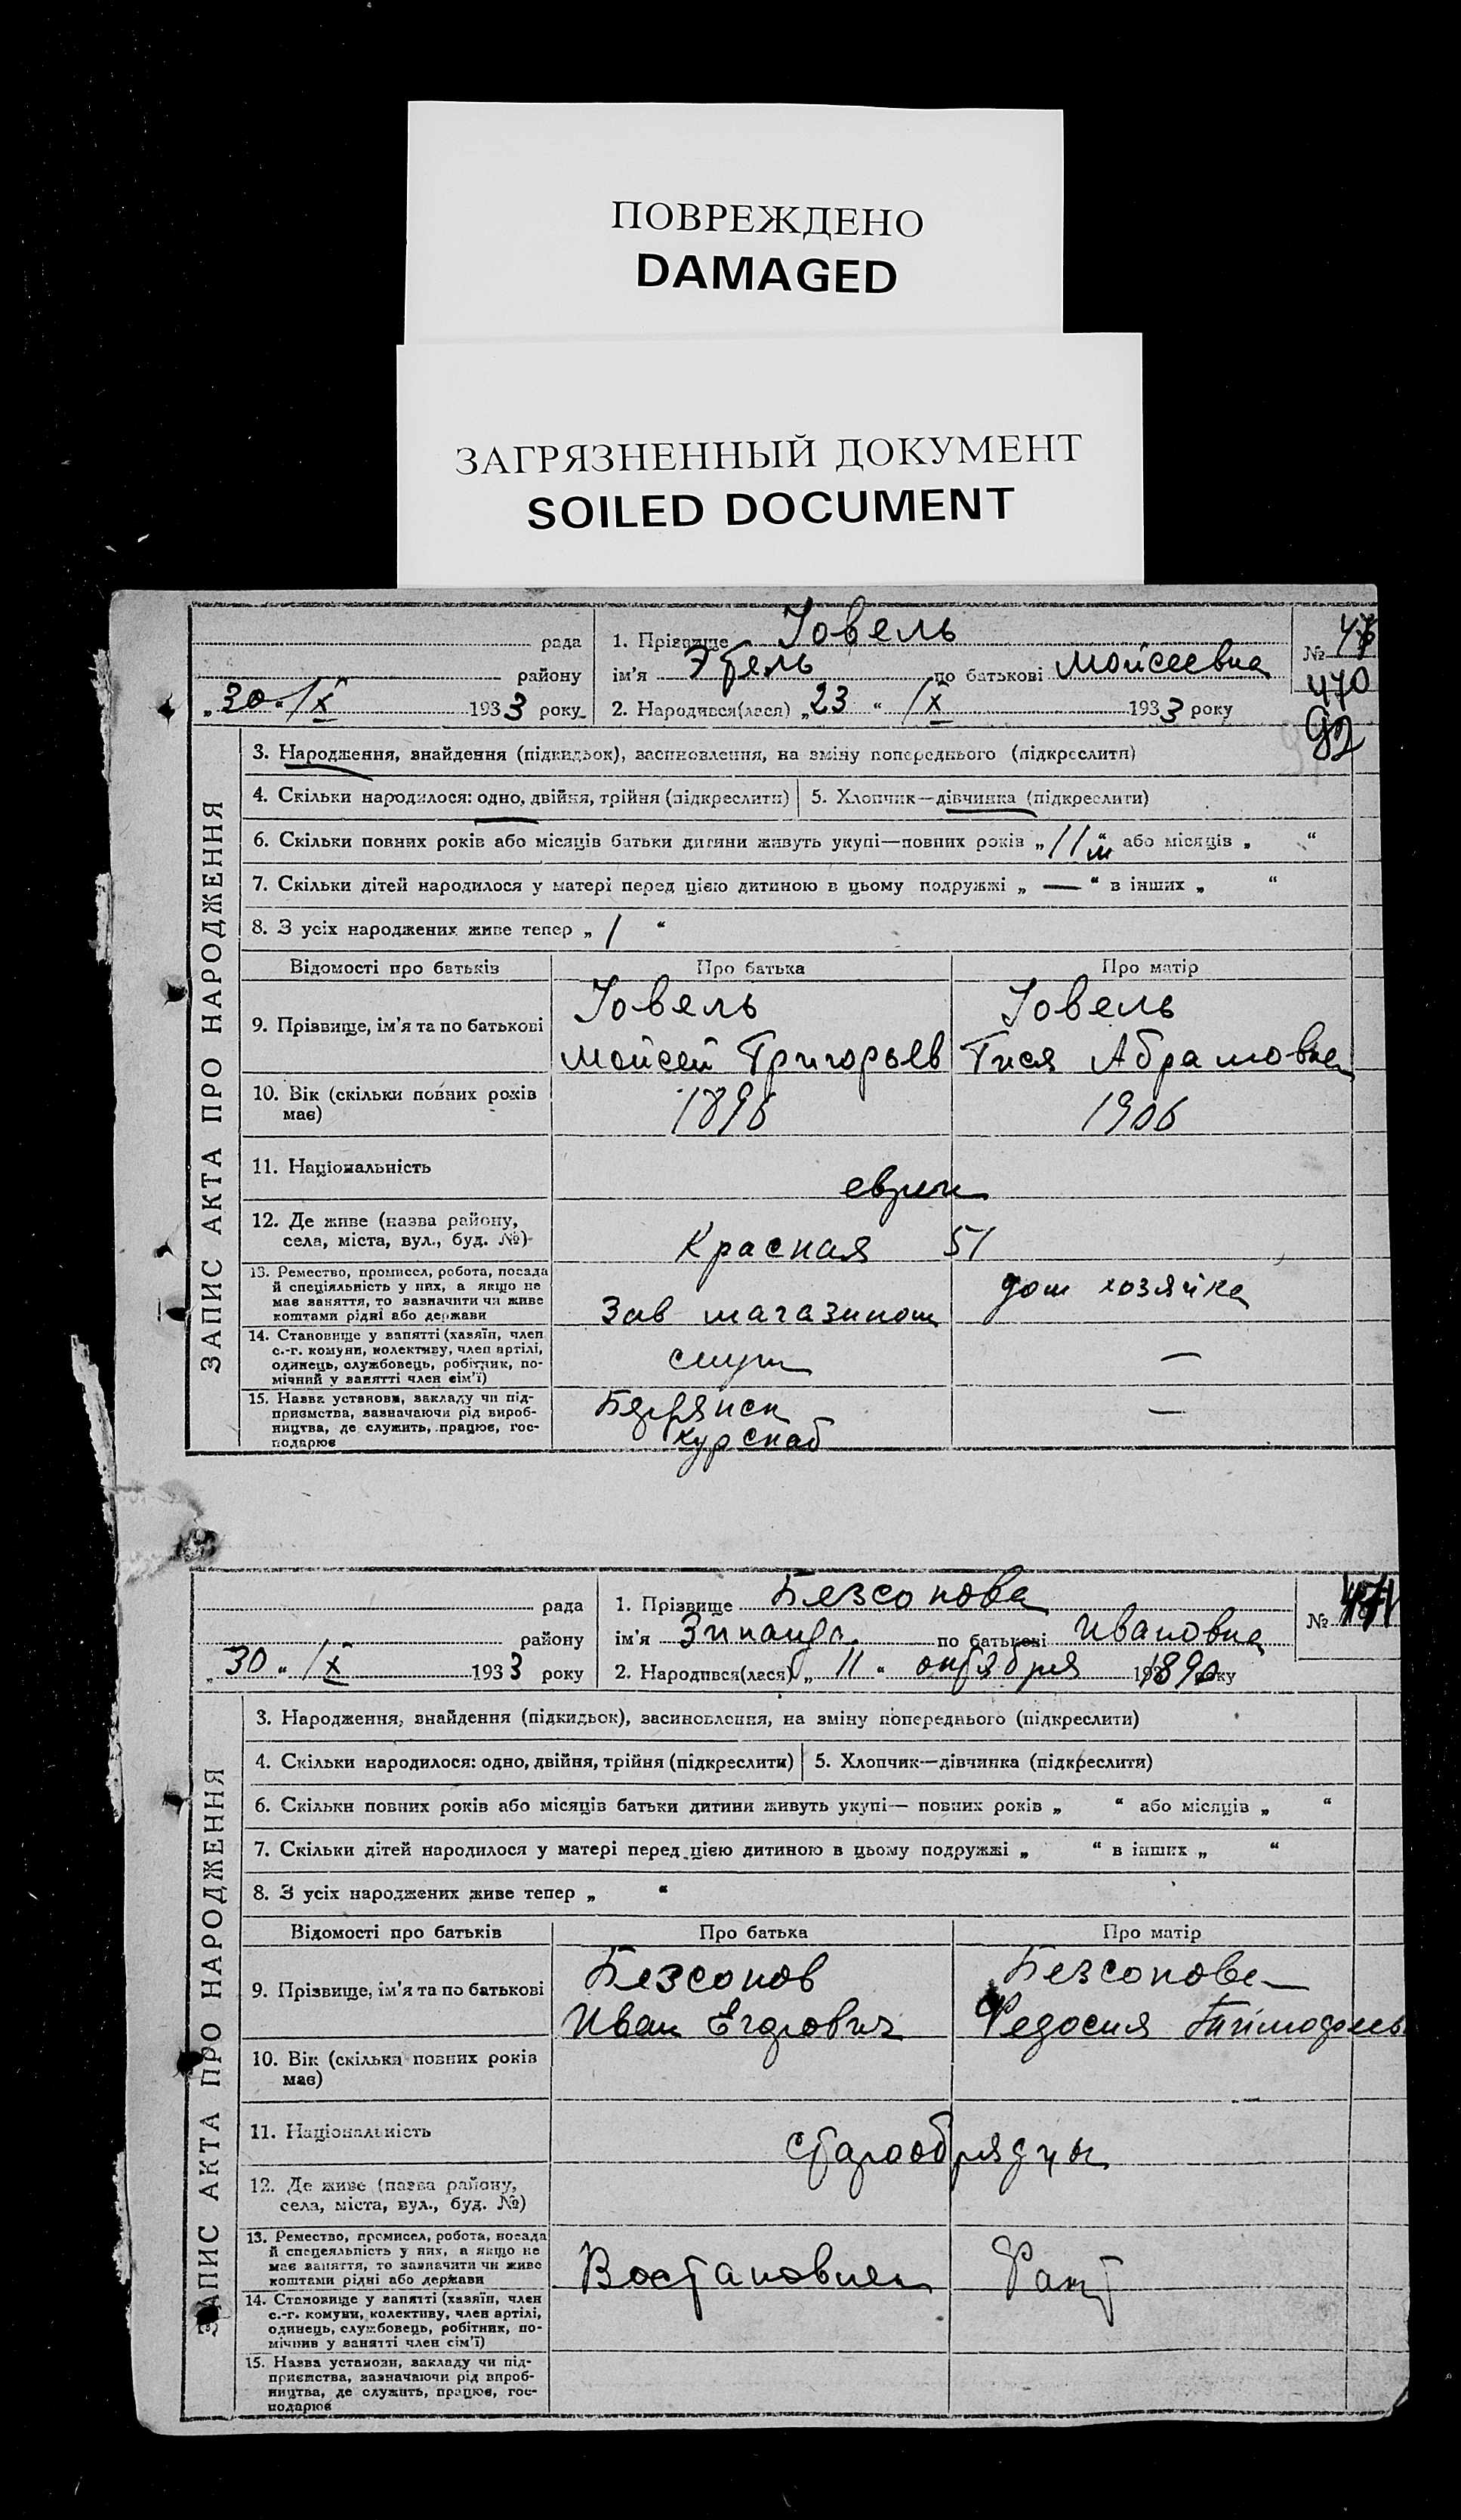 ПОВРЕЖДЕНО
DAMAGED
ЗАГРЯЗНЕННЫЙ ДОКУМЕНТ
SOILED DOCUMENT
ЗАПИС АКТА ПРО НАРОДЖЕННЯ
рада
1. Прізвище Іовель
району
ім'я Этель по батькові Мойсеевна
№
470
92
„30“ IX 1933 року
2. Народився(лася) „23“ IX 1933 року
3. Народження, знайдення (підкидьок), засиновлення, на зміну попереднього (підкреслити)
4. Скільки народилося: одно, двійня, трійня (підкреслити)
5. Хлопчик—дівчинка (підкреслити)
6. Скільки повних років або місяців батьки дитини живуть укупі—повних років „11 м“ або місяців „ “
7. Скільки дітей народилося у матері перед цією дитиною в цьому подружжі „ — “ в інших „ “
8. З усіх народжених живе тепер „ 1 “
Відомості про батьків
Про батька
Про матір
9. Прізвище, ім'я та по батькові
Іовель
Мойсей Григорьев
Іовель
Тися Абрамовна
10. Вік (скільки повних років
має)
1896
1906
11. Національність
евреи
12. Де живе (назва району,
села, міста, вул., буд. №)
Красная 51
13. Ремество, промисел, робота, посада
й спеціяльність у них, а якщо не
має заняття, то зазначити чи живе
коштами рідні або держави
Зав магазином
дом хозяйка
14. Становище у занятті (хазяїн, член
с.-г. комуни, колективу, член артілі,
одинець, службовець, робітник, по-
мічний у занятті член сім'ї)
служ
—
15. Назва установи, закладу чи під-
приємства, зазначаючи рід вироб-
ництва, де служить, працює, гос-
подарює
Бердянск
курснаб
—
ЗАПИС АКТА ПРО НАРОДЖЕННЯ
рада
1. Прізвище Безсонова
району
ім'я Зинаида по батькові Ивановна
№ 471
„30“ IX 1933 року
2. Народився(лася) „11“ октября 1890 року
3. Народження, знайдення (підкидьок), засиновлення, на зміну попереднього (підкреслити)
4. Скільки народилося: одно, двійня, трійня (підкреслити)
5. Хлопчик—дівчинка (підкреслити)
6. Скільки повних років або місяців батьки дитини живуть укупі— повних років „ “ або місяців „ “
7. Скільки дітей народилося у матері перед цією дитиною в цьому подружжі „ “ в інших „ “
8. З усіх народжених живе тепер „ “
Відомості про батьків
Про батька
Про матір
9. Прізвище, ім'я та по батькові
Безсонов
Иван Егорович
Безсонова
Федосия Тимофеев
10. Вік (скільки повних років
має)
11. Національність
старообрядцы
12. Де живе (назва району,
села, міста, вул., буд. №)
13. Ремество, промисел, робота, посада
й спецеяльність у них, а якщо не
має заняття, то зазначити чи живе
коштами рідні або держави
Востановлен
Факт
14. Становище у занятті (хазяїн, член
с.-г. комуни, колективу, член артілі,
одинець, службовець, робітник, по-
мічнив у занятті член сім'ї)
15. Назва установи, закладу чи під-
приємства, зазначаючи рід вироб-
ництва, де служить, працює, гос-
подарює